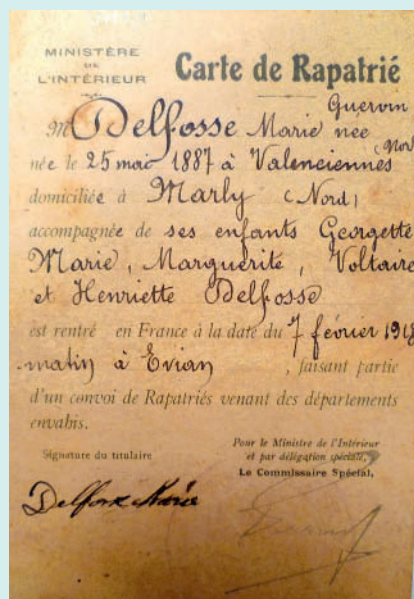 MINISTÈRE
DE
L'INTÉRIEUR
Carte de Rapatrié
M Delfosse Marie née Quervin
née le 25 mai 1887 à Valenciennes (Nord
domiciliée à Marly (Nord)
accompagnée de ses enfants Georgette
Marie, Marguerite, Voltaire
et Henriette Delfosse
est rentré en France à la date du 7 février 1918
matin à Evian, faisant partie
d'un convoi de Rapatriés venant des départements
envahis.
Signature du titulaire
Pour le Ministre de l'Intérieur
et par délégation spéciale,
Le Commissaire Spécial,
Delfosse Marie